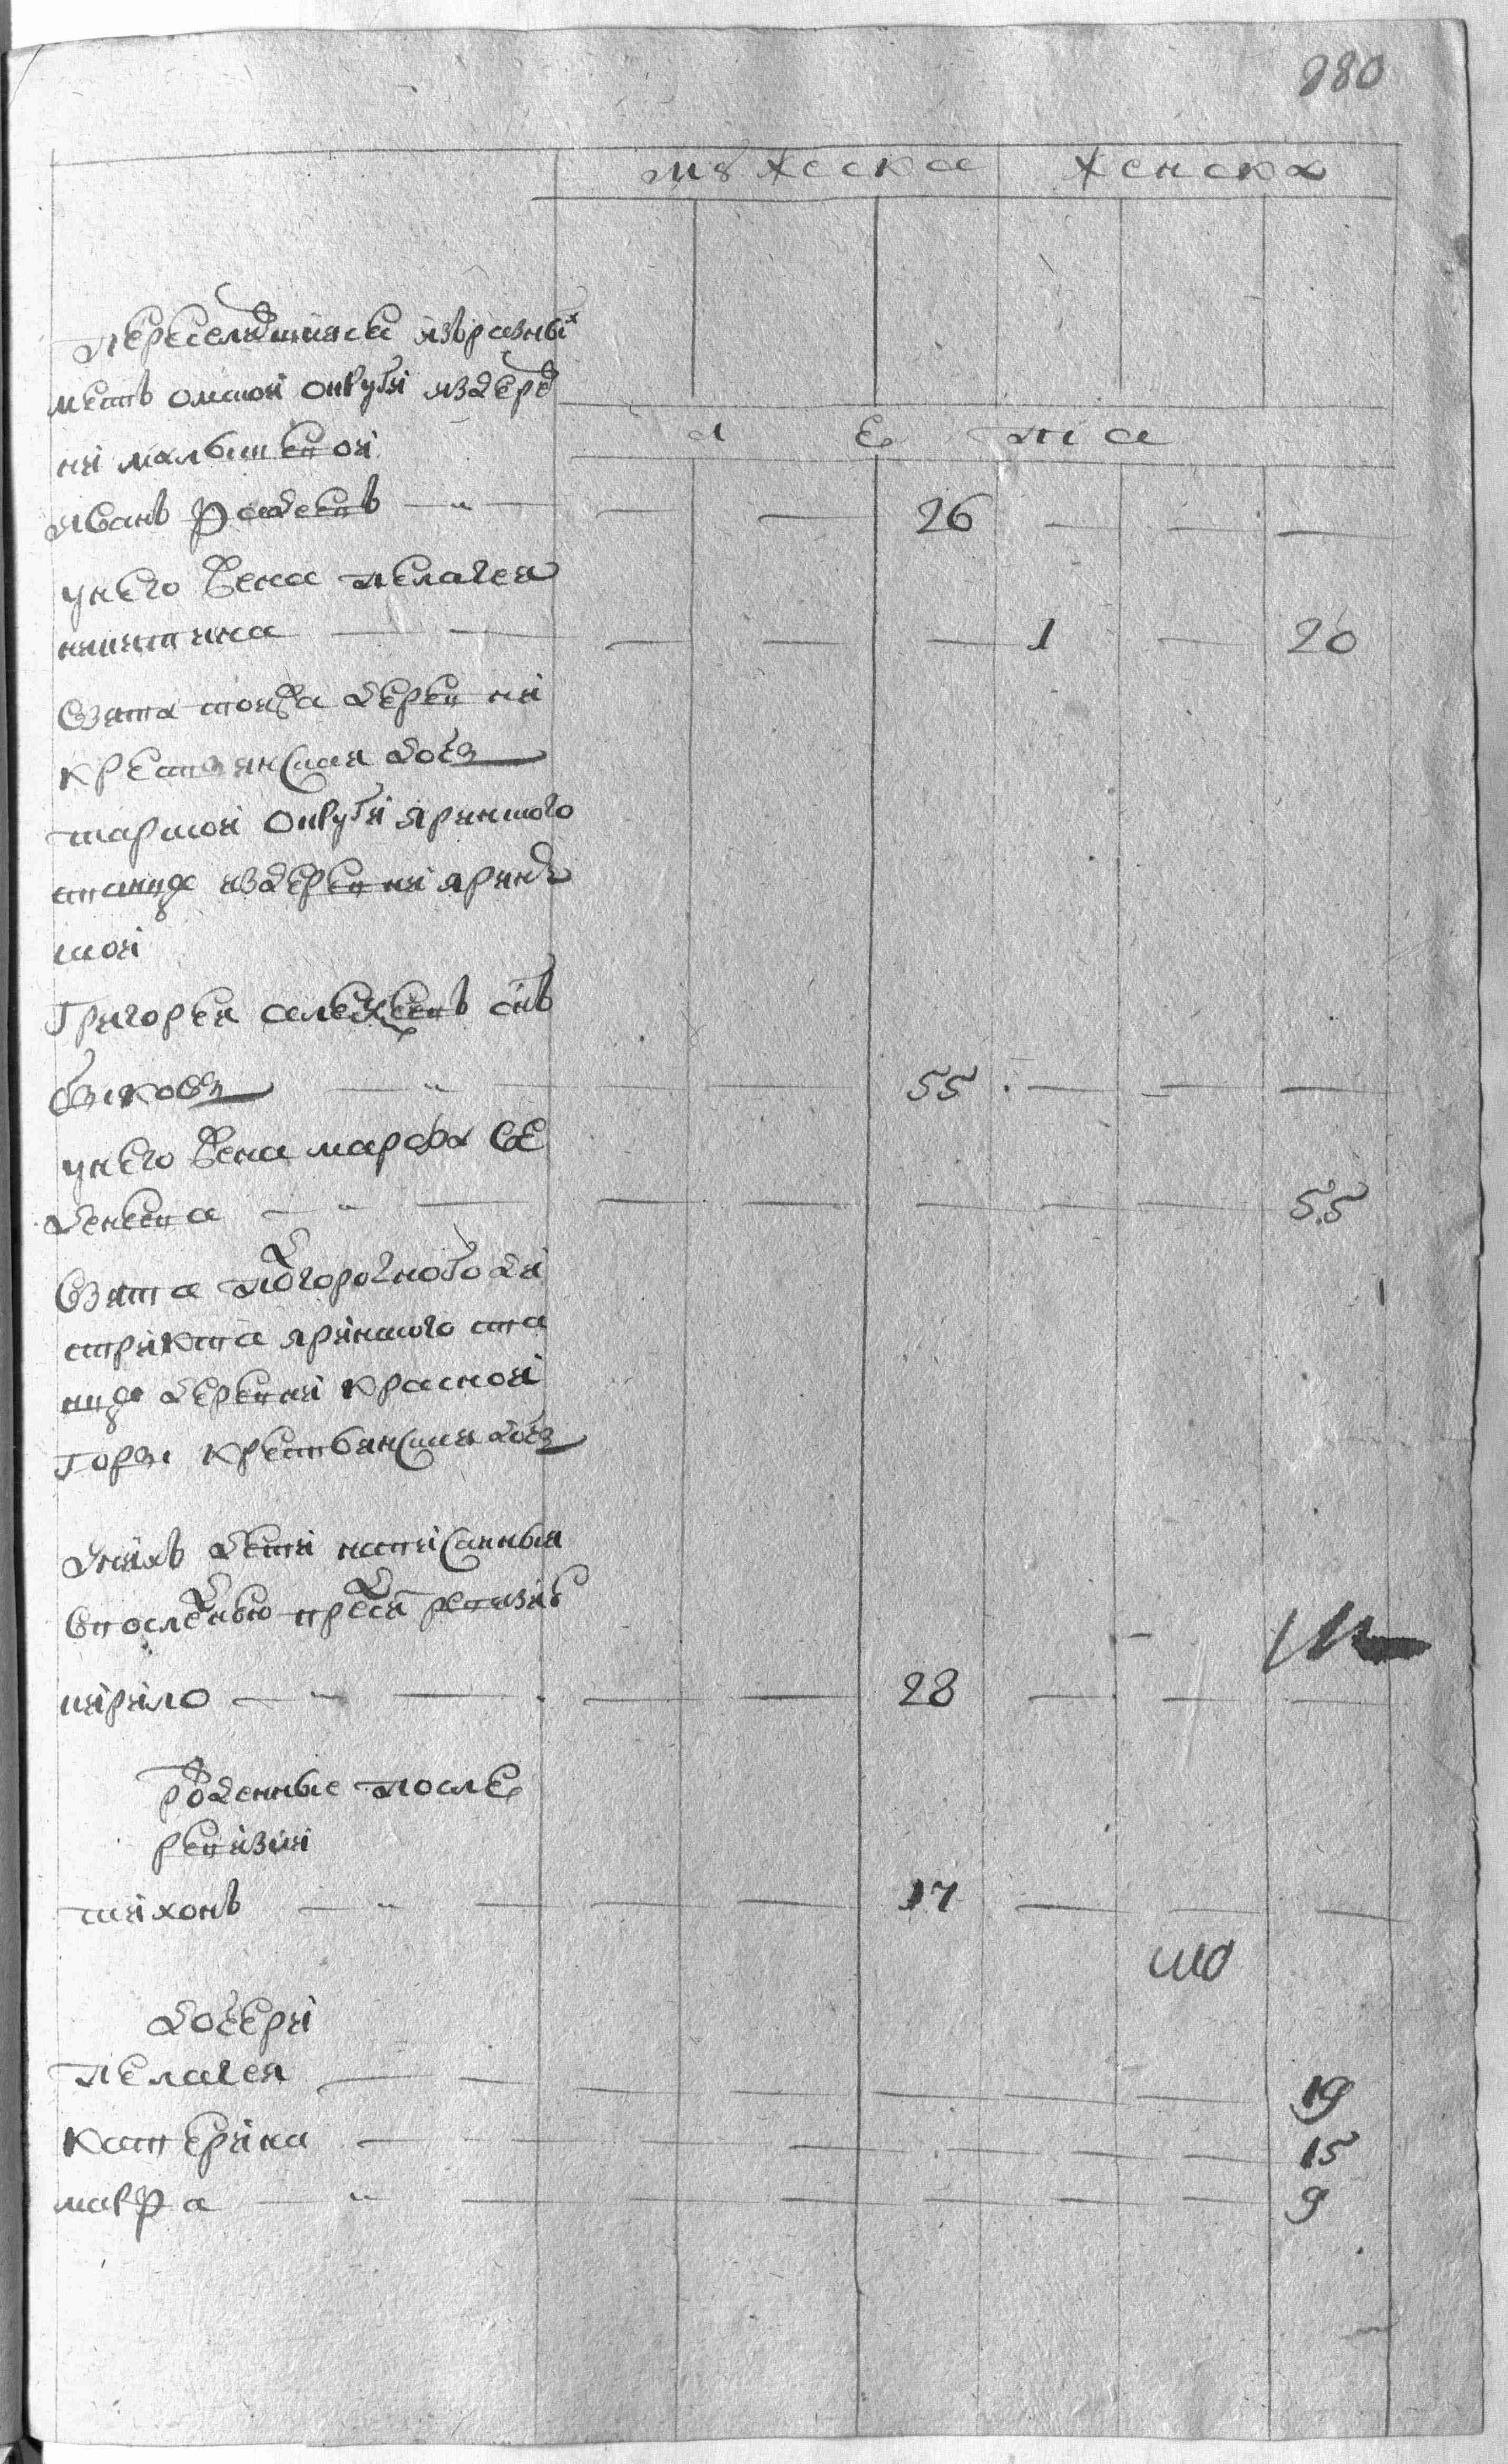 880
мꙋжеска женска
переселѧвшияся изъ разных
местъ омской округи из дерев
ни малышевой
лета
иванъ фадеевъ 26
у него жена пелагея
никитина 1 20
взята той же деревни
крестьянская дочь
тарской округи
станца из деревни
ской
григорей алексеевъ снъ
быковъ 55
у него жена марфа се
менова 55
взята подгородного ди
стрикта ста
нца деревни красной
горы крестьянская дочь
у нихъ дети написанныя
в последнюю пред сим ревизию
кирило 28
рожденные после
ревизии
тихонъ 17
дочери
пелагея 19
катерина 15
мавра 9